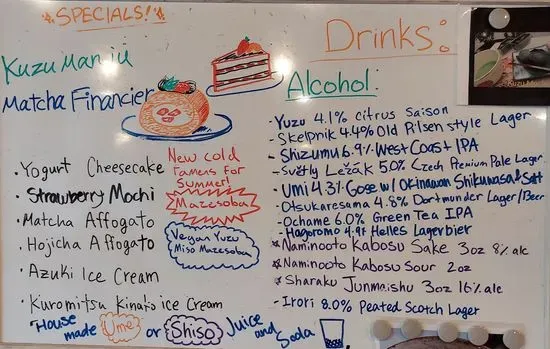 SPECIALS!
Kuzu Manju
Matcha Financier
Yogurt Cheesecake
Strawberry Mochi
Matcha Affogato
Hojicha Affogato
Azuki Ice Cream
Kuromitsu Kinako ice Cream
New cold
ramens For
Summer!
Mazesoba
Vegan Yuzu
Miso Mazesoba
"House made Ume or Shiso Juice and Soda
Drinks:
Alcohol:
-Yuzu 4.1% citrus Saison
-Skelpnik 4.4% Old Pilsen style Lager
-Shizumu 6.9% West Coast IPA
-Světlý Ležák 5.0% Czech Premium Pale Lager
-Umi 4.3% Gose w/ Okinawan Shikuwasa & Salt
-Otsukaresama 4.8% Dortmunder Lager/Beer
-Ochame 6.0% Green Tea IPA
-Hagoromo 4.9% Helles Lagerbier
*Naminooto Kabosu Sake 3oz 8% alc
*Naminooto Kabosu Sour 2oz
*Sharaku Junmaishu 3oz 16% alc
-Irori 8.0% Peated Scotch Lager